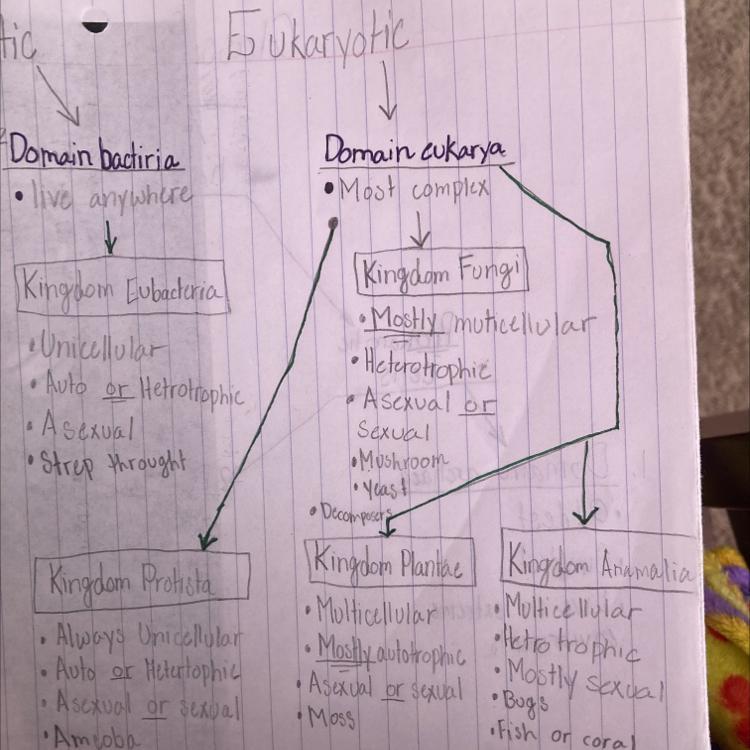 tic
Eukaryotic
Domain bactiria
• live anywhere
Kingdom Eubacteria
• Unicellular
• Auto or Hetrotrophic
• Asexual
• Strep throught
Domain eukarya
• Most complex
Kingdom Fungi
• Mostly muticellular
• Heterotrophic
• Asexual or
sexual
• Mushroom
• Yeast
• Decomposers
Kingdom Protista
• Always Unicellular
• Auto or Hetertophic
• Asexual or sexual
• Ameoba
Kingdom Plantae
• Multicellular
• Mostly autotrophic
• Asexual or sexual
• Moss
Kingdom Anamalia
• Multicellular
• Hetrotrophic
• Mostly sexual
• Bugs
• Fish or coral